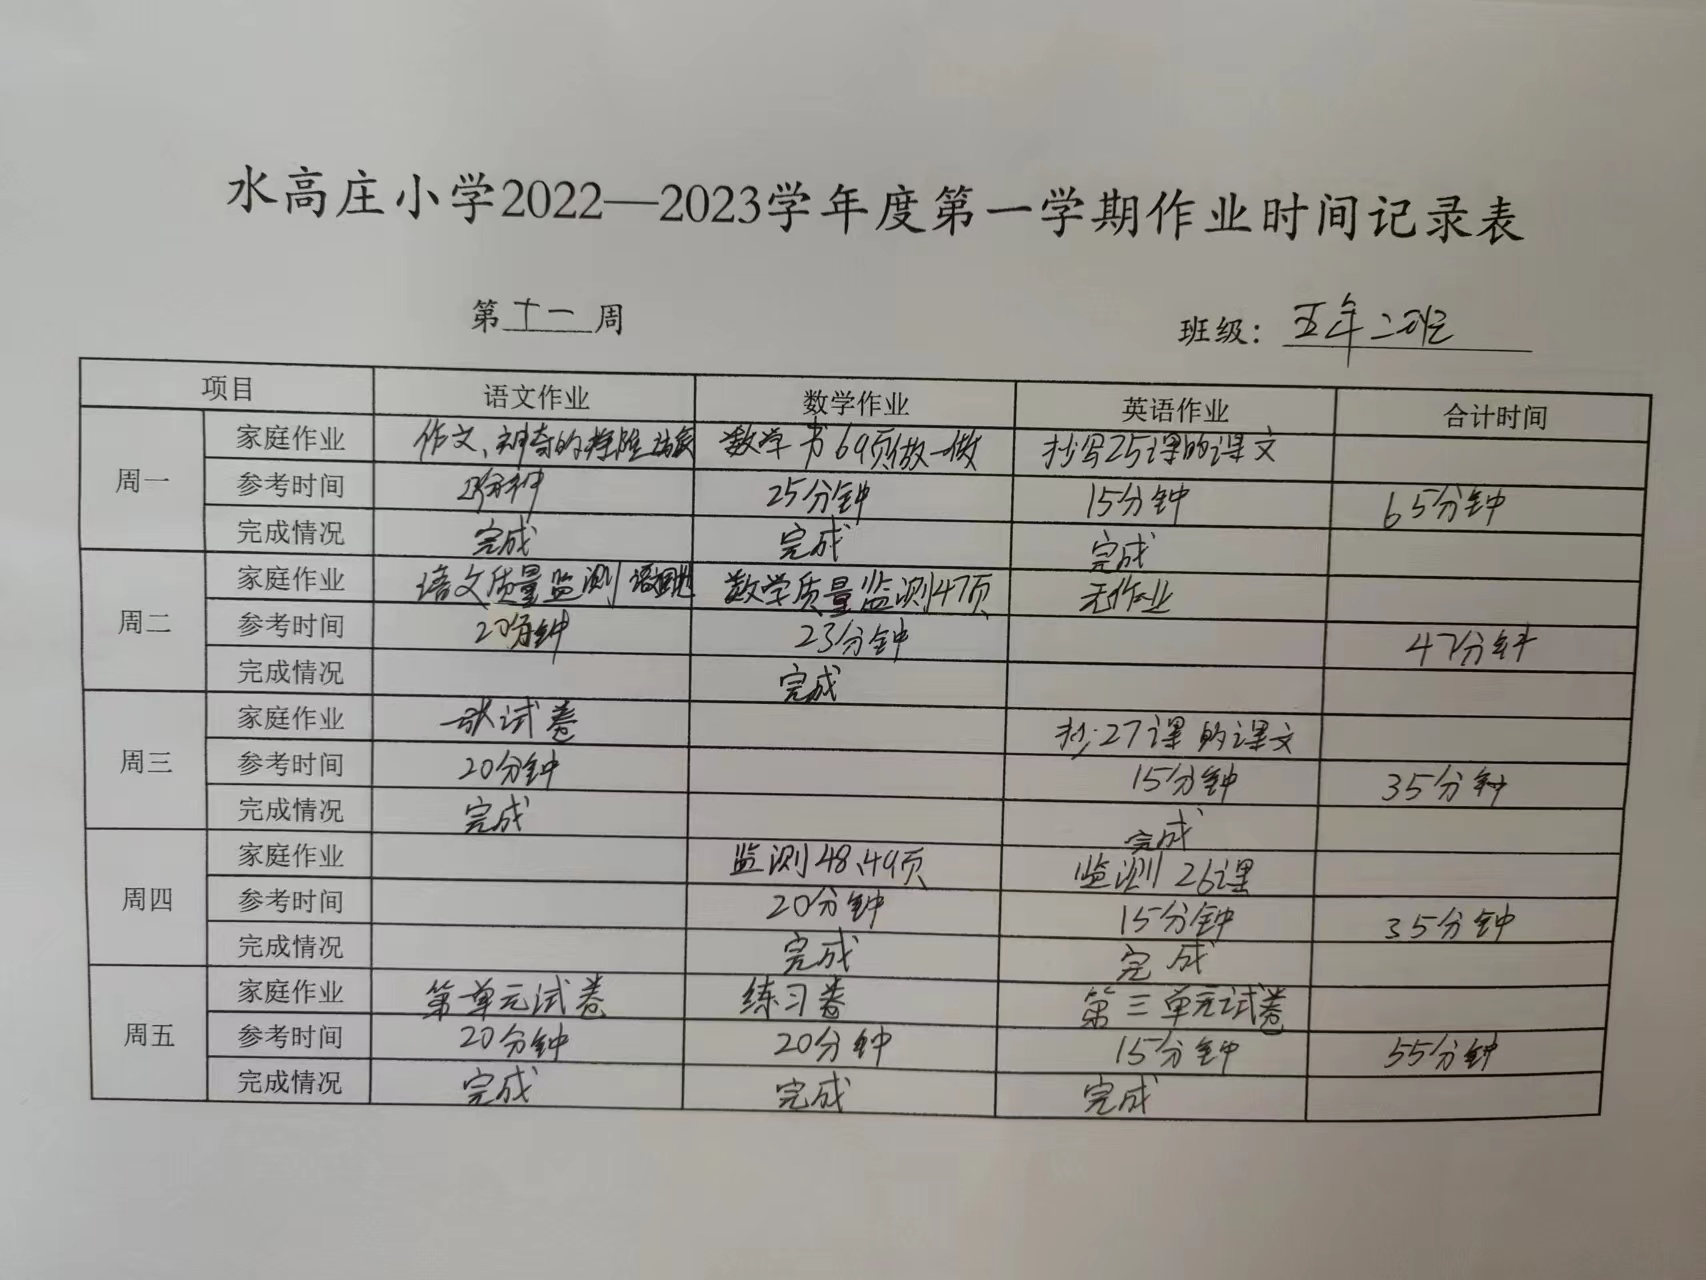 水高庄小学2022—2023学年度第一学期作业时间记录表
第十一周 班级：五年二班
项目 语文作业 数学作业 英语作业 合计时间
周一 家庭作业 作文、神奇的探险 数学书69页做一做 抄写25课的课文
参考时间 分钟 25分钟 15分钟 65分钟
完成情况 完成 完成 完成
周二 家庭作业 语文质量监测 数学质量监测47页 无作业
参考时间 20分钟 23分钟 47分钟
完成情况 完成
周三 家庭作业 一张试卷 抄27课的课文
参考时间 20分钟 15分钟 35分钟
完成情况 完成 完成
周四 家庭作业 监测48、49页 监测26课
参考时间 20分钟 15分钟 35分钟
完成情况 完成 完成
周五 家庭作业 第单元试卷 练习卷 第三单元试卷
参考时间 20分钟 20分钟 15分钟 55分钟
完成情况 完成 完成 完成